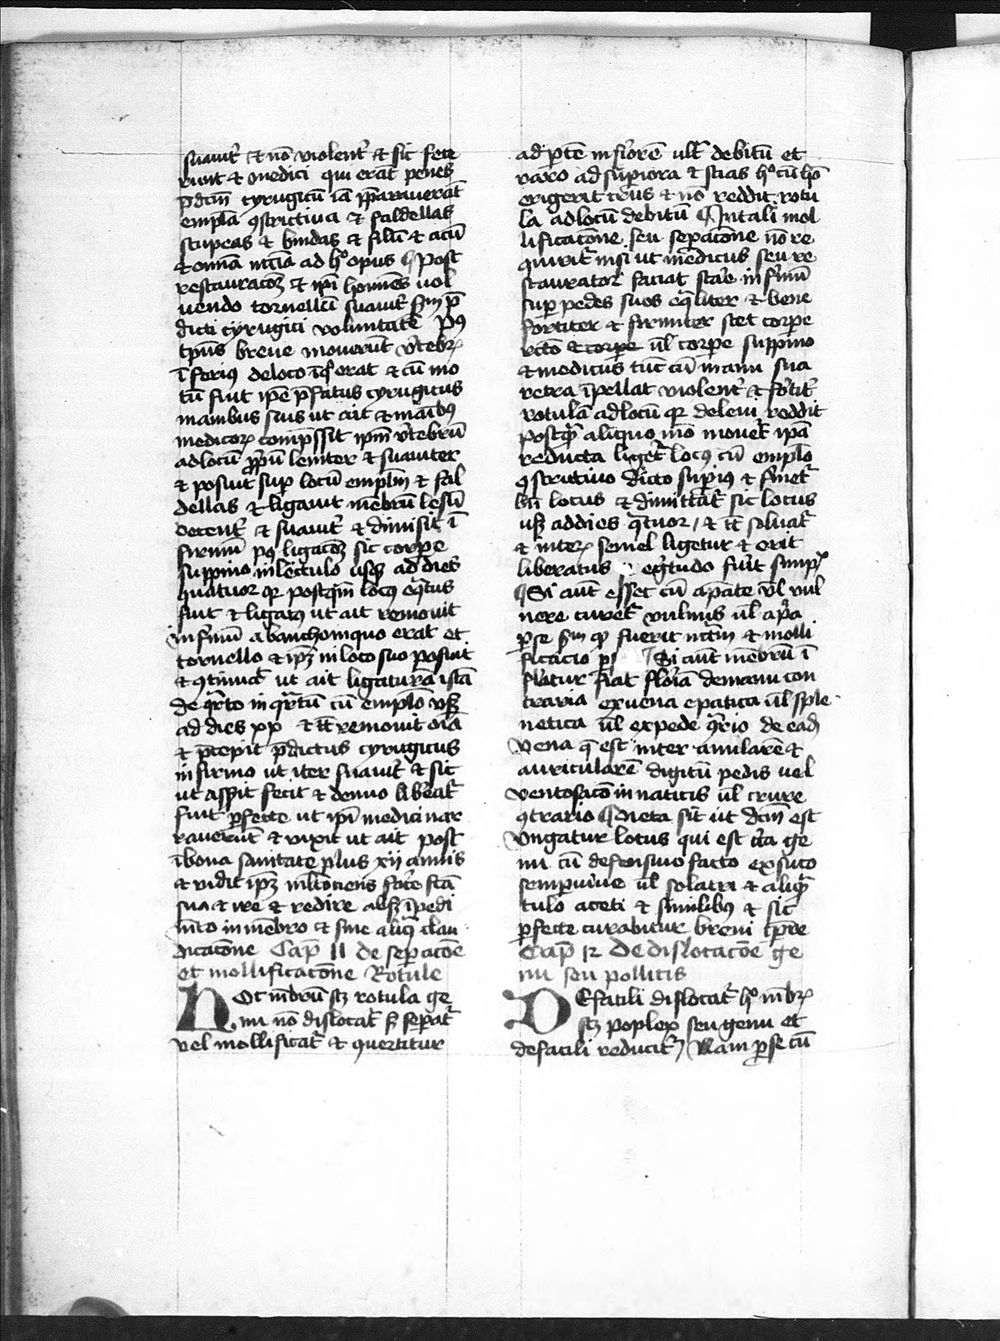 suauit̾ et nō violent̾ et sic fece
runt et medici qui erāt penes
p̄dcm̄ cyrugicū iā p̄parauerāt
emplā ꝯstrictiua et faldellas
stupeas et bindas et filū et acū
et om̄ia nccīa ad hͦ opus ¶ post
restauracōꝫ et ip̄i homīes vol
uendo tornellū suauit̾ scdm p̄
dicti cyrugici voluntatē pꝰ
tp̄us breue mouerūt v̾tebꝝ
ī feriꝰ de loco ī qͦ erat et cū mo
tū fuit ip̄e p̄fatus cyrugicus
manibus suis ut ait et maībꝰ
medicoꝝ comp̄ssit ip̄m v̾tebrū
ad locū p̄p̄iū leniter et suauiter
et posuit suꝑ locū emplm̄ et fal
dellas et ligauit mēbrū lesū
decent̾ et suauit̾ et dimisit ī
firmū pꝰ ligacōꝫ sic corpe
suppino in lectulo usqꝫ ad dies
quatuor qꝫ postqm̄ locꝰ
fuit et ligatꝰ ut ait remouit
infirmū a banchō in quo erat et
tornello et ip̄ꝫ in loco suo posuit
et ꝯtinuat̾ ut ait ligaturā istā
de qͣrto in qͣrtū cū emplō usqꝫ
ad dies xx et tc̄ remouit oīa
et p̄cepit p̄dictus cyrugicus
infirmo ut iter suauit̾ et sic
ut asserit fecit et demū libeat̾
fuit ꝑfecte ut ip̄i medici nar
rauerūt et vixit ut ait post
ī bona sanitate plus xij annis
et vidit ip̄ꝫ mltociens fac̾e fcā
sua et ire et redire absqꝫ īpedi
mēto in mēbro et sine aliqͣ clau
dicacōne Cap̄ 11 de separacōe
et mollificatōne Rotule
Hoc mēbrū scꝫ rotula ge
nu nō dislocat̾ sꝫ sepat̾
vel mollificat̾ et quertitur
ad ꝑtē inferiorē ult̾ debitū et
raro ad superiora et scias hͦ cū hō
erigerit crus et nō reddit rotu
la ad locū debitū ¶ In tali mol
lificatōne seu sepacōne nō re
quirit̾ nisi ut medicus seu re
staurator faciat stare infirmū
super pedes suos eqͣliter et bene
fortiter et firmiter stet corpe
rcto et corpe ul̾ corpe suppino
et medicus tūc cū manu sua
retra īpellat violent̾ et fortit̾
rotulā ad locū qꝫ de leui reddit
postqͣ aliquo mō mouet̾ ipā
reducta liget̾ locꝰ cū emplō
ꝯstrictiuo dicto superiꝰ et firmet̾
bn̄ locus et dimittat̾ sic locus
usqꝫ ad dies qͣtuor / et tc̄ soluat̾
et iterꝫ semel ligetur et erit
liberatus egritudo fu̾it simpꝫ
¶ Si aūt esset cū apacōe ul̾ vul
nere curet̾ vulnus ul̾ apͣa
ꝑ se scdm qꝫ fuerit nctm̄ et molli
ficacio ꝑs ¶ Si aūt mēbrū ī
flatur fiat fleōia de manu con
traria ex vena epatica ul̾ sple
netica ul̾ ex pede ꝯrio de eadꝫ
vena q̄ est inter anularē et
auricularē digitū pedis vel
ventosacō in naticis ul̾ crure
ꝯtrario ¶ Dieta sit ut dcm̄ est
vngatur locus qui est circa ge
nu cū defensiuo facto ex suco
semperuiue ul̾ solatri et aliqͣn
tulo aceti et similibꝰ et sic
ꝑfecte curabitur breui tp̄re
Cap̄ 12 De dislocacōe ge
nu seu pollicis
De facili dislocat̾ hͦ mēbꝝ
scꝫ poplex seu genu et
de facili reducit̾ Nam ꝑ se cū